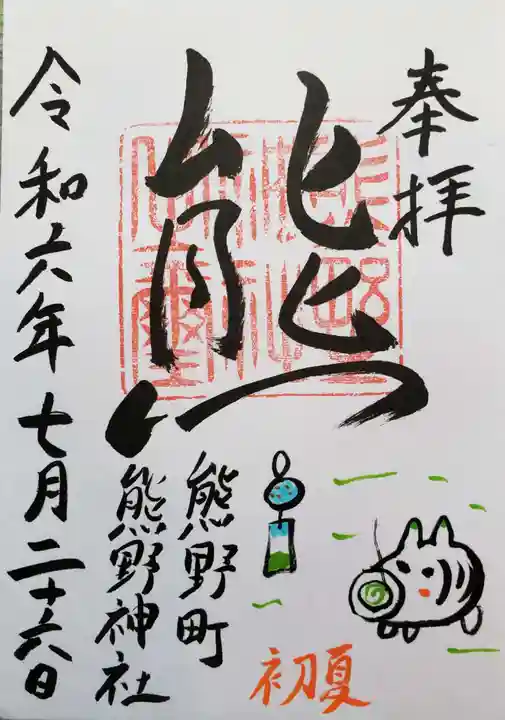 奉拝
熊
熊野町
熊野神社
初夏
令和六年七月二十六日